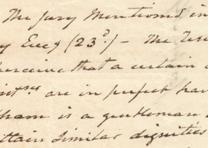 The Jury Mentioned in
y Eucy (23d.) — The Test
perceive that a certain
are in perfect har
tham is a gentleman
ttain Similar dignities